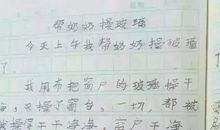 帮奶奶擦玻璃
今天上午我帮奶奶擦玻璃
了。
我用布把窗户的玻璃擦干
净,又擦了窗台。一切,都被
我擦得干干净净,窗户干净